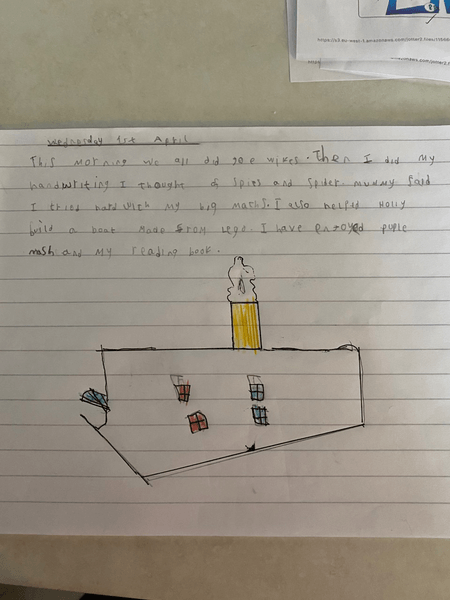 https://s3.eu-west-2.amazonaws.com/jotter2.files/
Wednesday 1st April
This morning we all did Joe wikes. Then I did my
handwriting I thought of Spies and spider. mummy said
I tried hard with my big maths. I also helped Holly
build a boat made from lego. I have enjoyed
mash and my reading book.